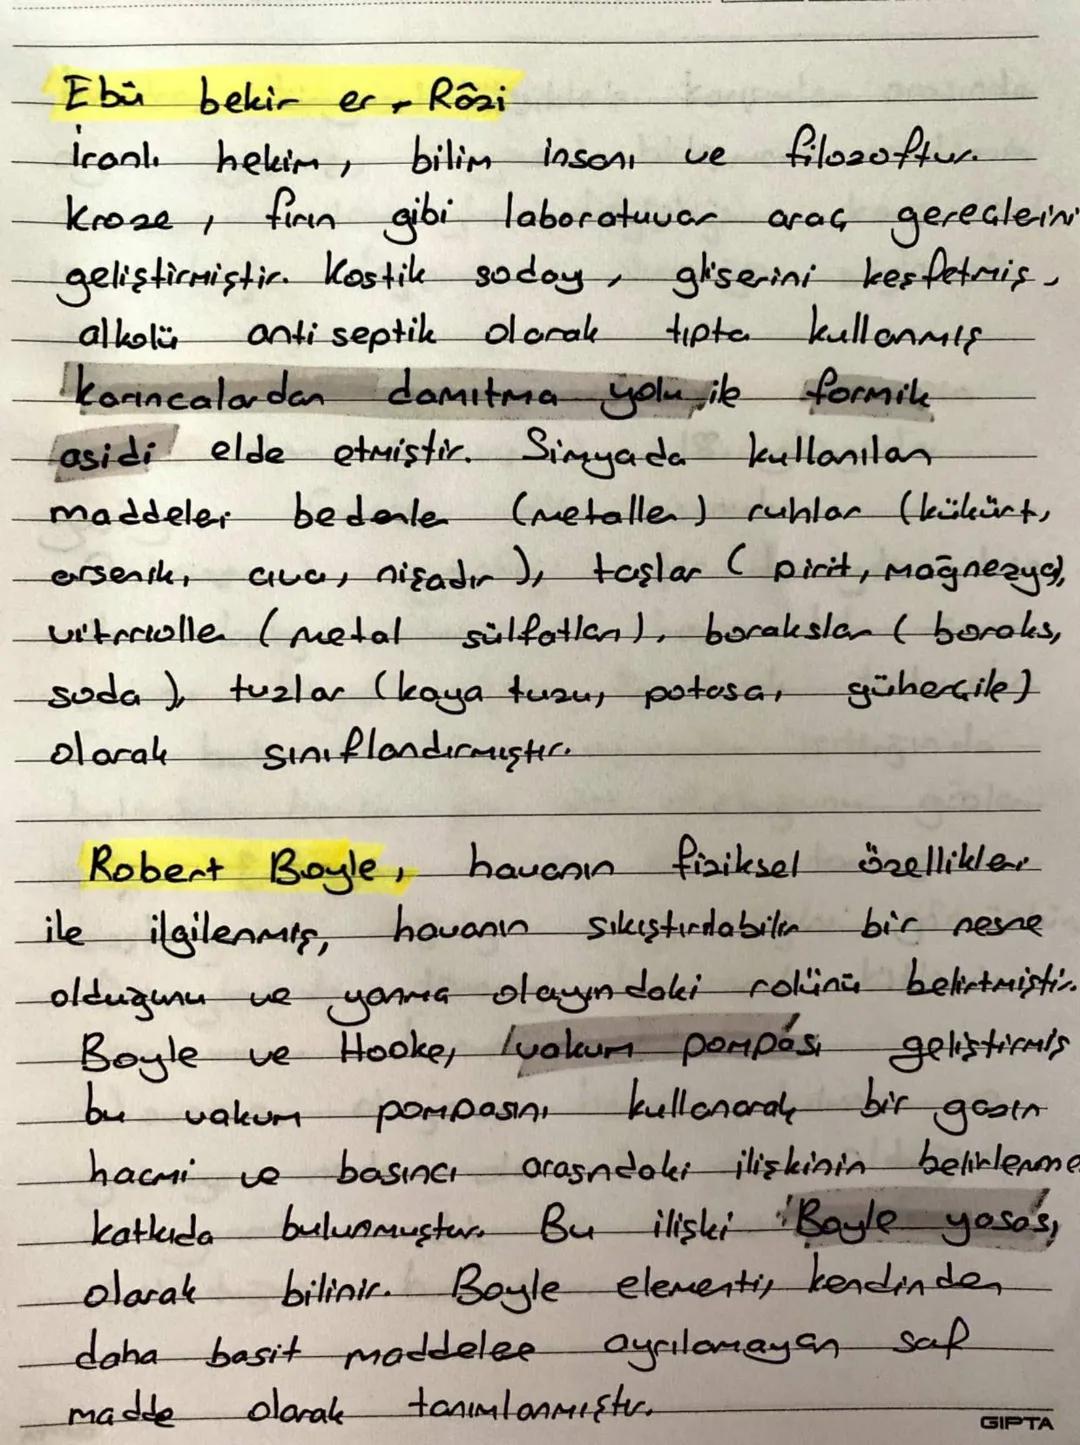 Ebû bekir er - Râzi
İranlı hekim, bilim insanı ve filozoftur.
Kroze, fırın gibi laboratuvar araç gereçlerini
geliştirmiştir. Kostik soday, gliserini keşfetmiş,
alkolü antiseptik olarak tıpta kullanmış
karıncalardan damıtma yolu ile formik
asidi elde etmiştir. Simyada kullanılan
maddeler bedenler (metaller) ruhlar (kükürt,
arsenik, cıva, nişadır), taşlar (pirit, mağnezya),
vitrioller (metal sülfatları), borakslar (boraks,
soda), tuzlar (kaya tuzu, potasa, güherçile)
olarak sınıflandırmıştır.
Robert Boyle, havanın fiziksel özellikler
ile ilgilenmiş, havanın sıkıştırılabilir bir nesne
olduğunu ve yanma olayındaki rolünü belirtmiştir.
Boyle ve Hooke, vakum pompası geliştirmiş
bu vakum pompasını kullanarak bir gazın
hacmi ve basıncı arasındaki ilişkinin belirlenme
katkıda bulunmuştur. Bu ilişki 'Boyle yasası,
olarak bilinir. Boyle elementi, kendinden
daha basit maddelere ayrılamayan saf
madde olarak tanımlanmıştır.
GIPTA